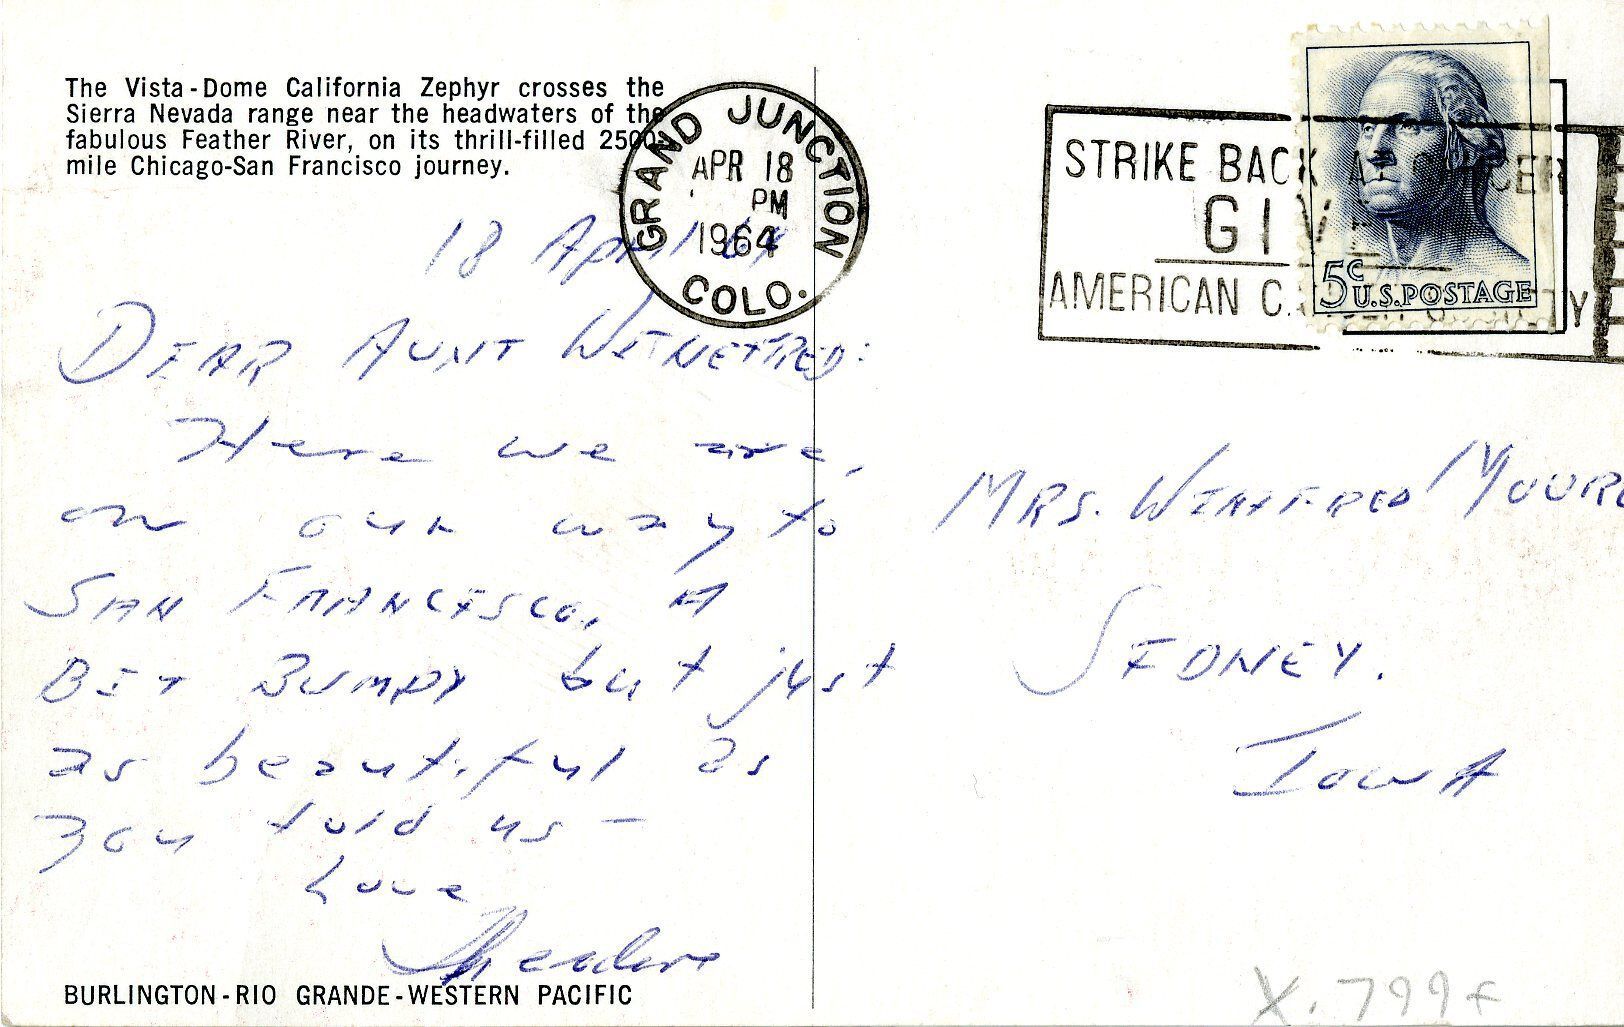 The Vista-Dome California Zephyr crosses the
Sierra Nevada range near the headwaters of the
fabulous Feather River, on its thrill-filled 2500
mile Chicago-San Francisco journey.
GRAND JUNCTION
APR 18
PM
1964
COLO.
STRIKE BACK AT CANCER
GIVE
AMERICAN CANCER SOCIETY
5c
U.S.POSTAGE
18 April 64
DEAR AUNT WINEFRED:
Here we are,
on our way to
SAN FRANCISCO. A
BIT BUMPY but just
as beautiful as
you told us -
Love
Theodore
MRS. WINIFRED
SIDNEY.
IOWA
BURLINGTON-RIO GRANDE-WESTERN PACIFIC
X.799f